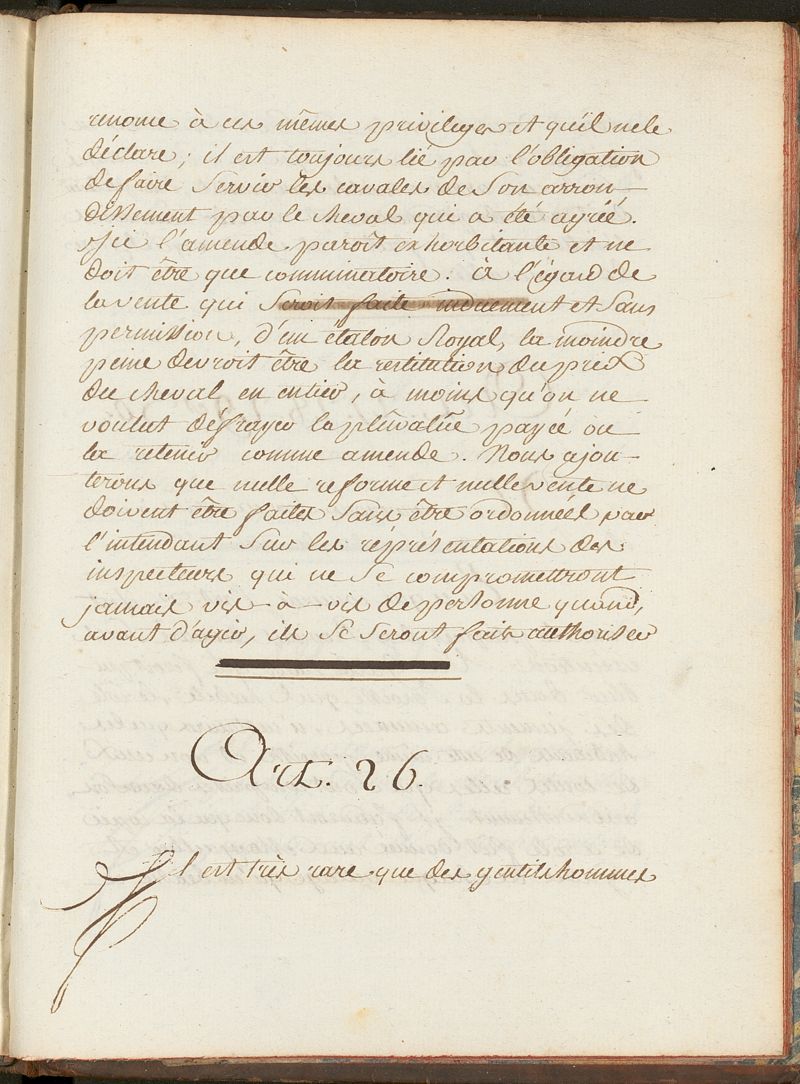 renome à ces mêmes privileges et qu'il ne le
déclare; il est toujours lié par l'obligation
de faire servir les cavales de son arron-
dissement par le cheval qui a été agréé.
Ici l'amende paroît exhorbitante et ne
doit être que comminatoire. à l'égard de
la vente qui seroit faite induement et sans
permission, d'un étalon Royal, la moindre
peine devroit être la restitution du prix
du cheval en entier, à moins qu'on ne
voulut défrayer la plûvalüe payée ou
la retenir comme amende. Nous ajou-
terons que nulle reforme et nulle vente ne
doivent être faites sans être ordonnées par
l'intendant sur les réprésentations des
inspecteurs qui ne se compromettront
jamais vis-à-vis de personne quand,
avant d'agir, ils se seront fait authoriser
Art. 26.
Il est très rare que des gentilshommes